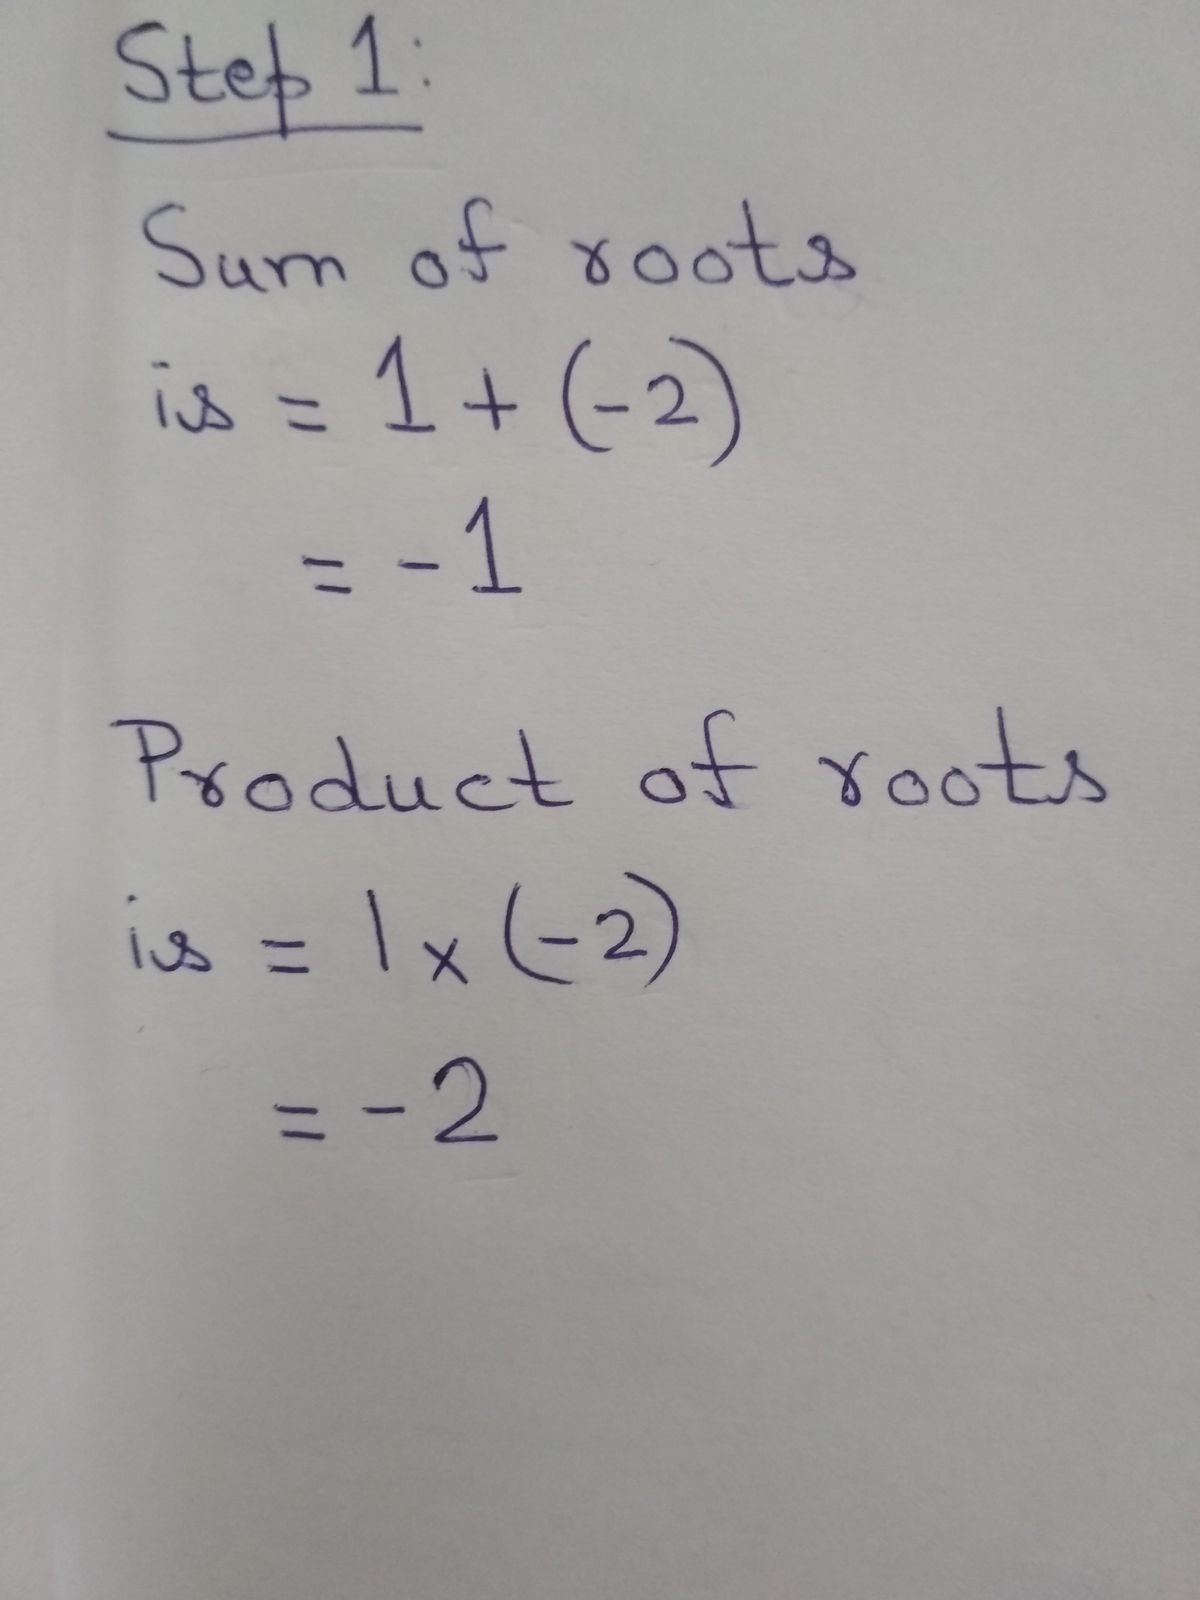 Step 1:
Sum of roots
is = 1 + (-2)
= - 1
Product of roots
is = 1 x (-2)
= - 2